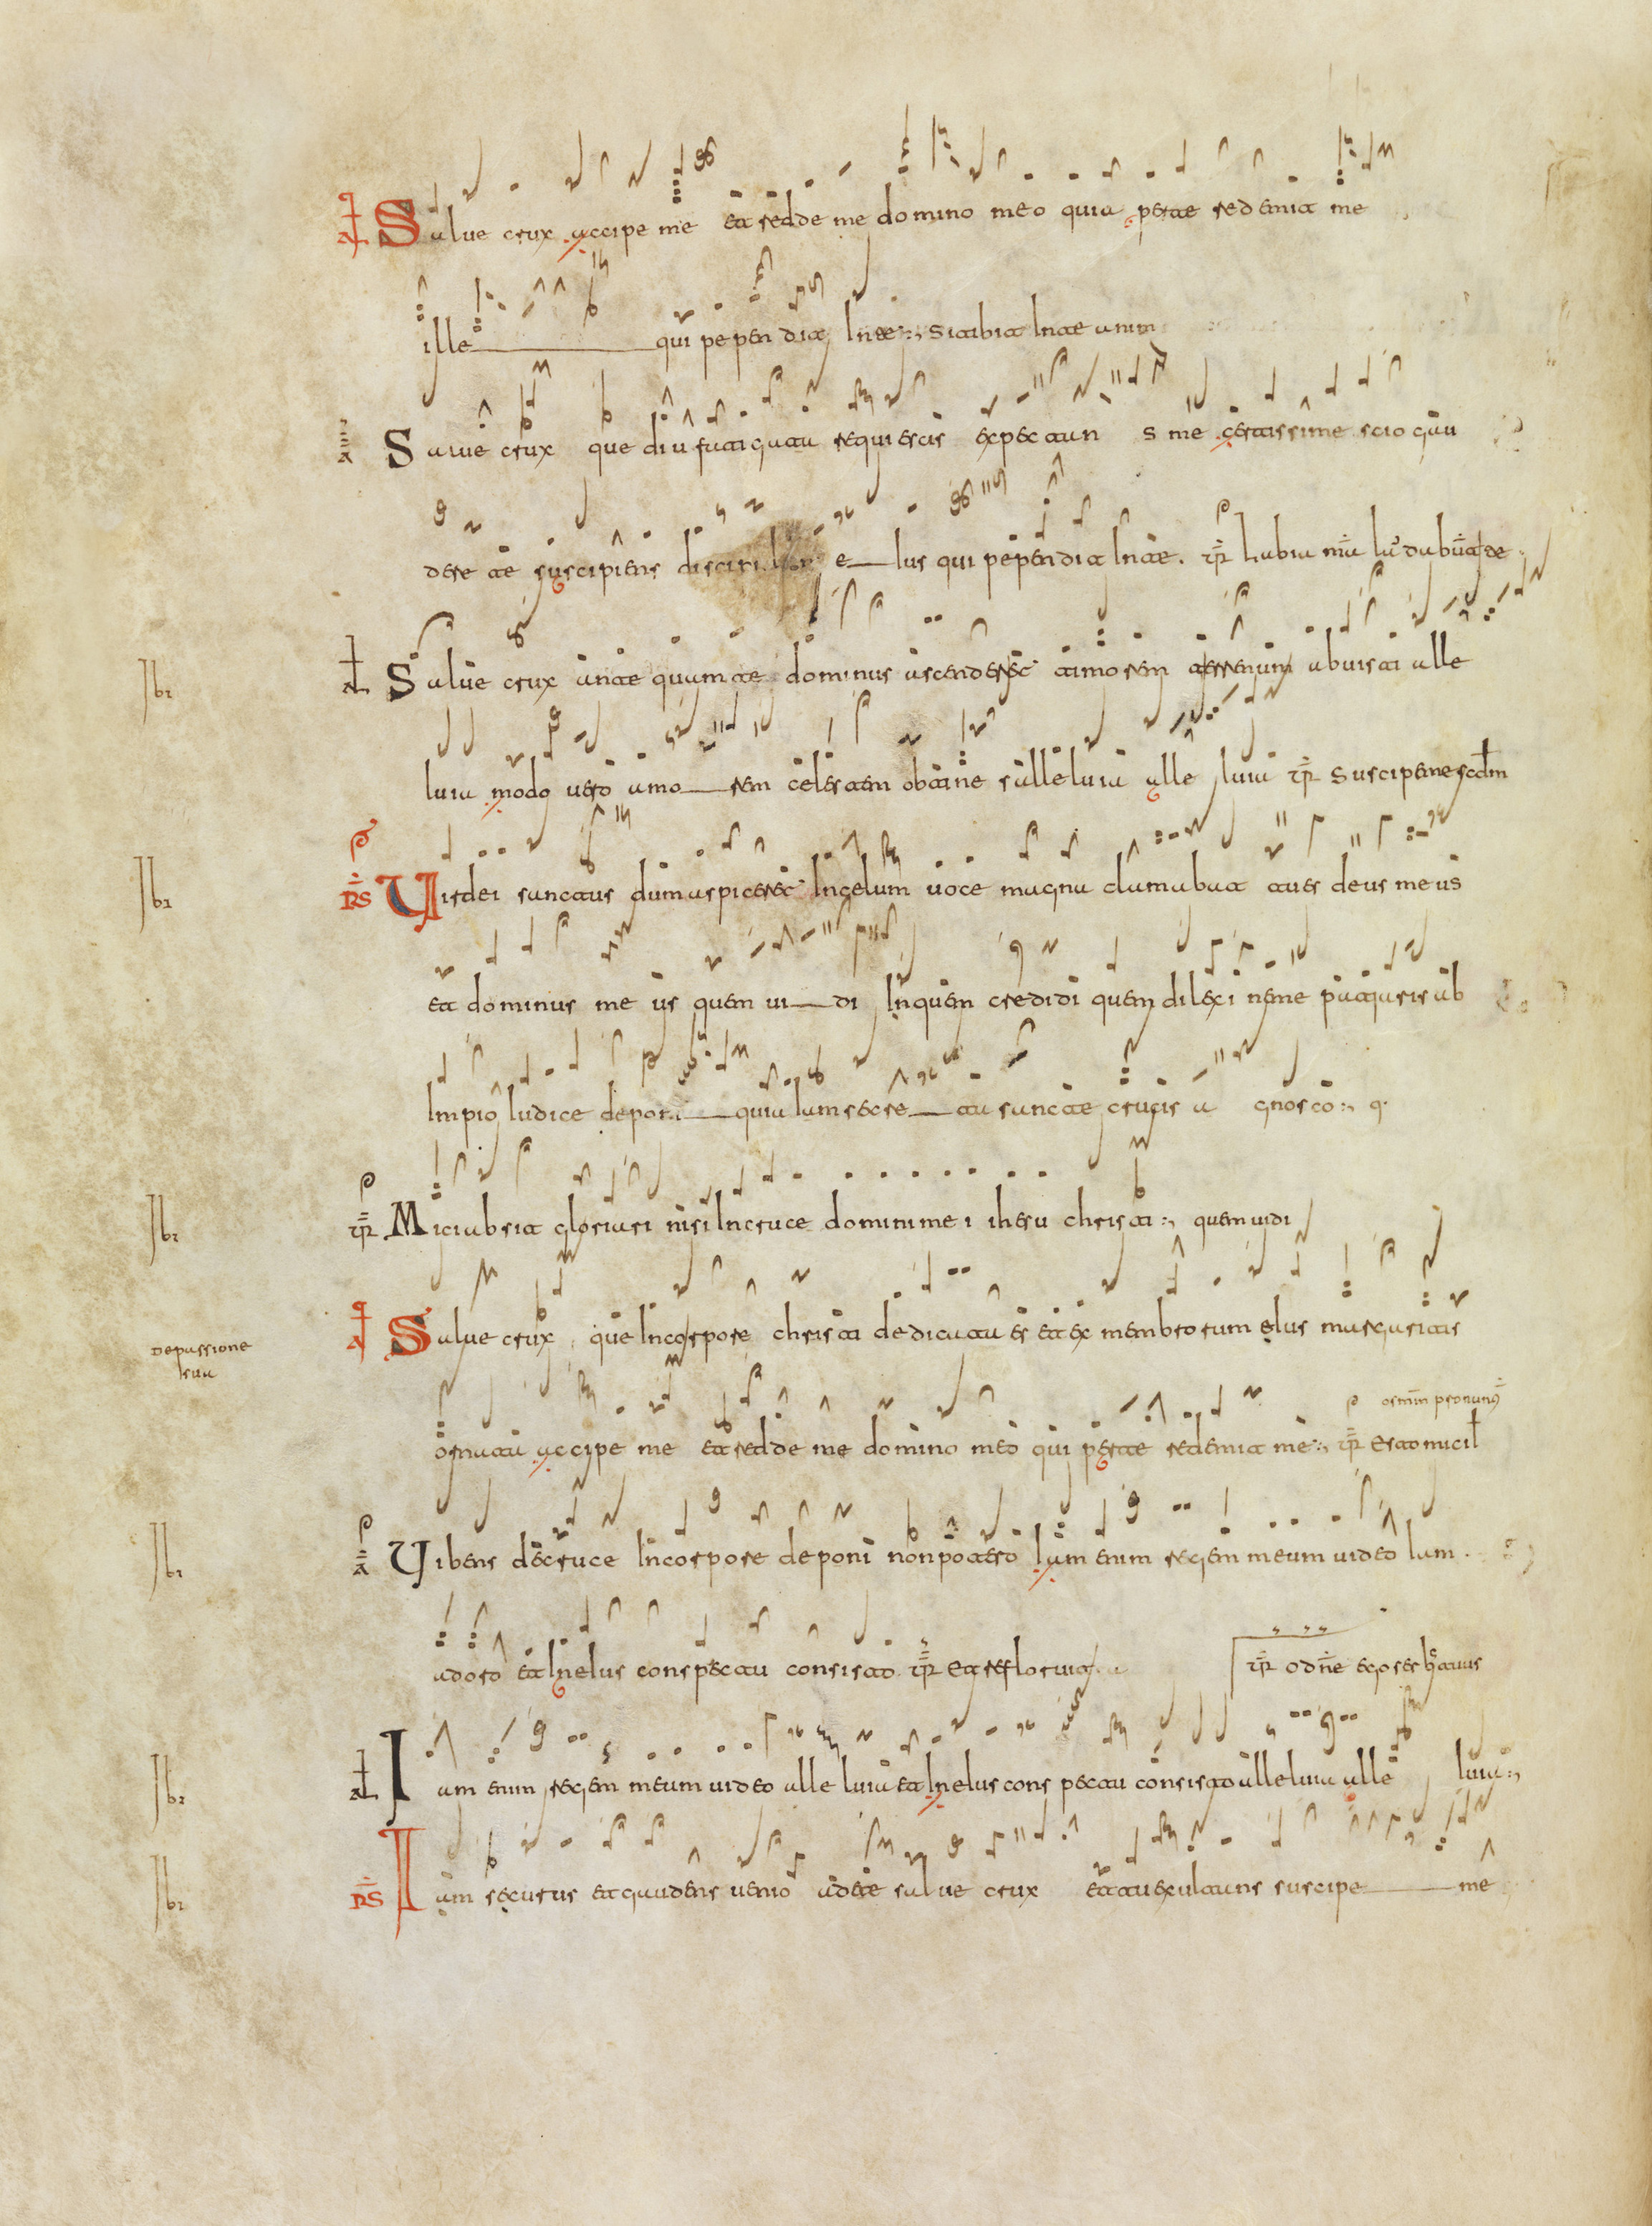 Salue crux accipe me et redde me domino meo quia per te redemit me
ille qui pependit In te sit tibi In te anim
Salue crux que diu fatigata requiescis expectan s me certissime scio gau
dere te suscipiens discipul eius qui pependit In te. Labia mea laudabunt te
Salue crux ante quam te dominus ascenderet timorem terrenum abuisti alle
luia modo uero amorem celestem obtines alleluia alle luia Suscipe me scdm
Uir dei sanctus dum aspiceret In celum uoce magna clamabat tu es deus meus
et dominus meus quem uidi In quem credidi quem dilexi ne me patiaris ab
Impio Iudice deponi quia Iam secreta sancte crucis agnosco q
Mici absit gloriari nisi In cruce domini mei ihesu christi quem uidi
Salue crux que In corpore christi dedicata es et ex membrorum eius margaritis
De passione
sua
ornata accipe me et redde me domino meo qui per te redemit me Esto mici
Uibens de cruce In corpore deponi non potero Iam enim regem meum uideo Iam
adoro et In eius conspectu consisto Et refloruit O dne ego serbus tuus
Iam enim regem meum uideo alleluia et In eius conspectu consisto alleluia alle luia
Iam securus et gaudens uenio ad te salue crux et tu exultans suscipe me